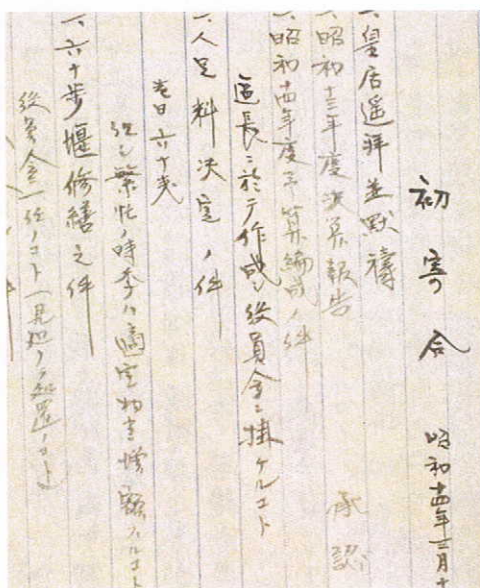 初寄合 昭和十四年三月十
一、皇居遥拝並黙禱
一、昭和十三年度決算報告 承認
一、昭和十四年度予算編成ノ件
区長ニ於テ作成シ役員会ニ掛ケルコト
一、人足料決定ノ件
壱日六十銭
但シ繁忙ノ時季ハ適宜増額スルコト
一、六十歩堰修繕之件
役員会一任ノコト(見廻リテ処置ノコト)